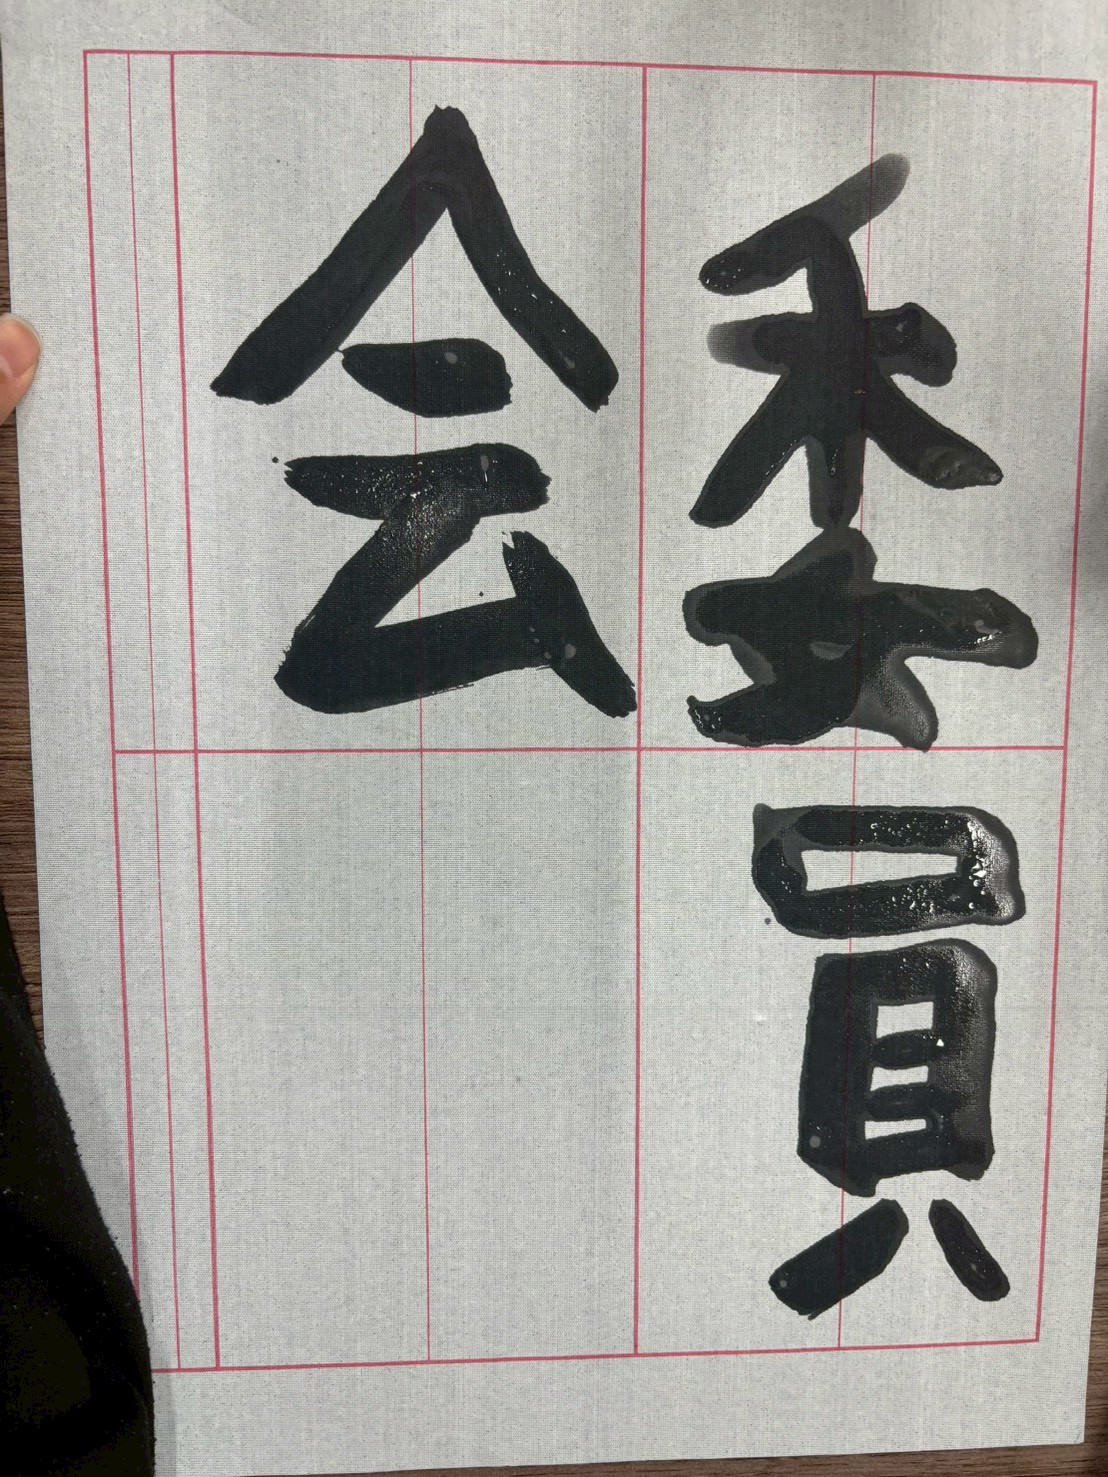 委員
会